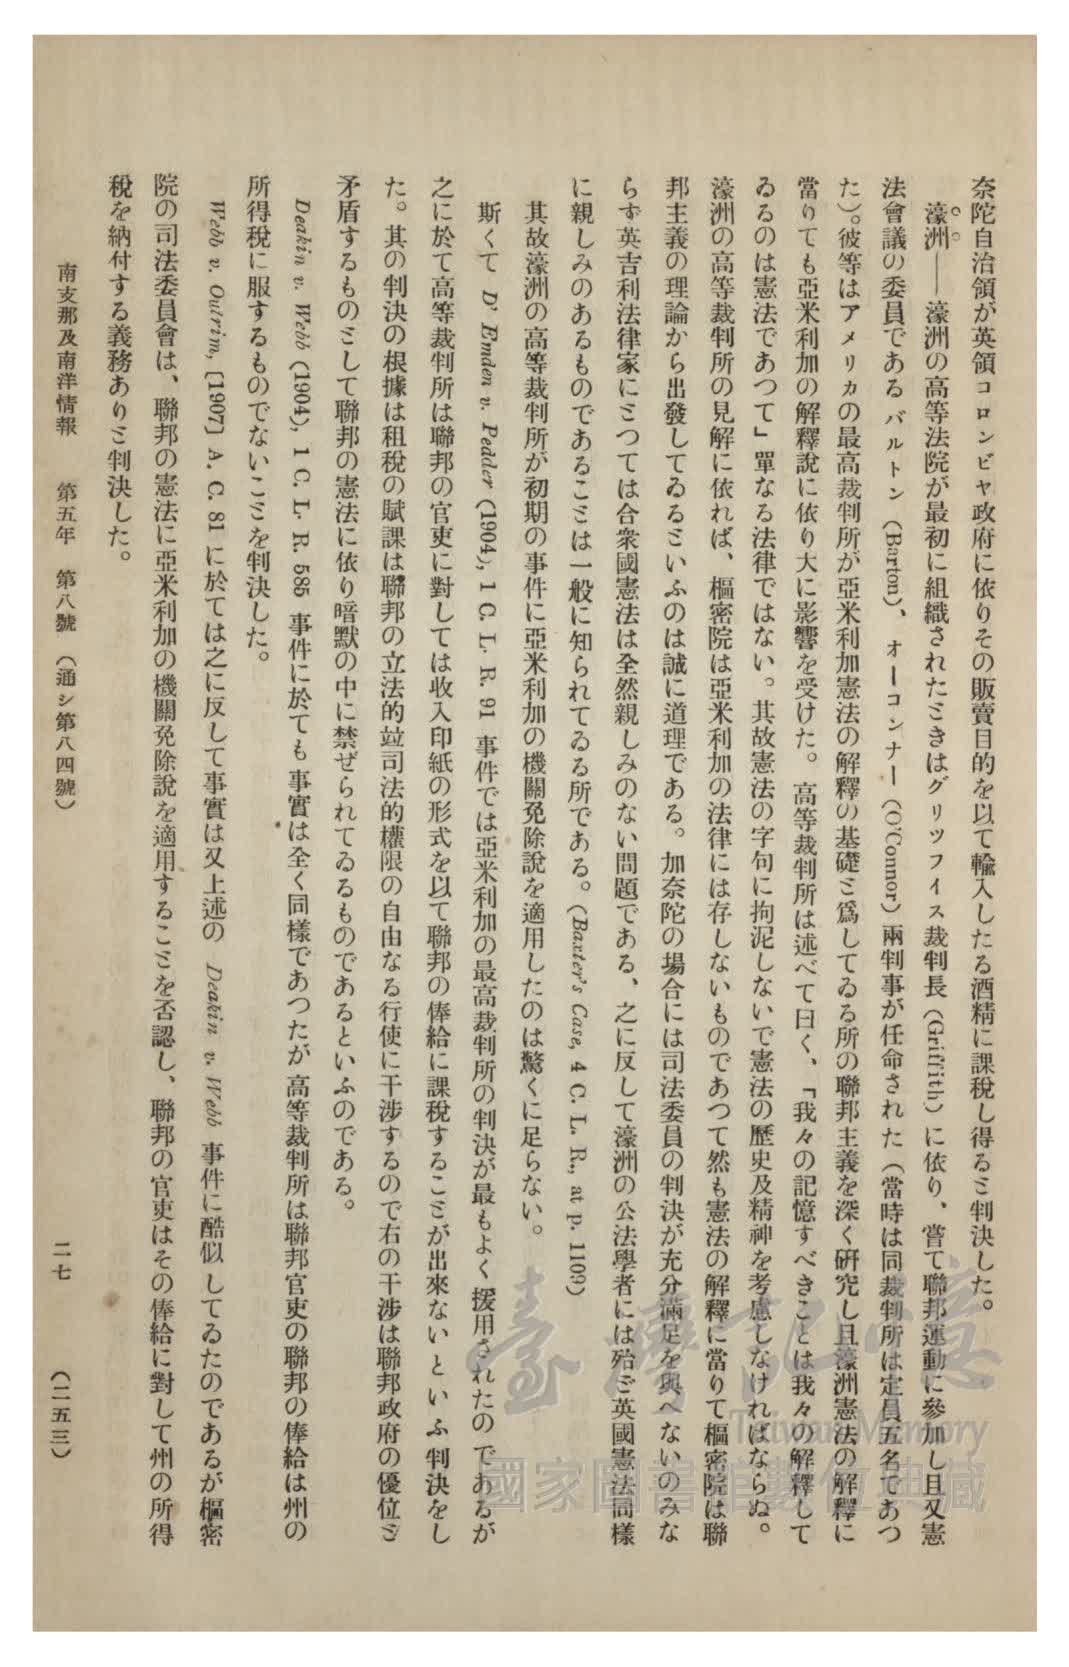 奈陀自治領が英領コロンビヤ政府に依りその販賣目的を以て輸入したる酒精に課税し得るヿ判決した。
濠洲――濠洲の高等法院が最初に組織されたときはグリツフイス裁判長（Griffith）に依り、嘗て聯邦運動に參加し且又憲
法會議の委員であるバルトン（Barton）、オーコンナー（O'Connor）兩判事が任命された（當時は同裁判所は定員五名であつ
た）。彼等はアメリカの最高裁判所が亞米利加憲法の解釋の基礎と爲してゐる所の聯邦主義を深く研究し且濠洲憲法の解釋に
當りても亞米利加の解釋說に依り大に影響を受けた。高等裁判所は述べて曰く、「我々の記憶すべきことは我々の解釋して
ゐるのは憲法であつて」單なる法律ではない。其故憲法の字句に拘泥しないで憲法の歷史及精神を考慮しなければならぬ。
濠洲の高等裁判所の見解に依れば、樞密院は亞米利加の法律には存しないものであつて然も憲法の解釋に當りて樞密院は聯
邦主義の理論から出發してゐるといふのは誠に道理である。加奈陀の場合には司法委員の判決が充分滿足を與へないのみな
らず英吉利法律家にとつては合衆國憲法は全然親しみのない問題である、之に反して濠洲の公法學者には殆ど英國憲法同樣
に親しみのあるものであることは一般に知られてゐる所である。（Baxter's Case, 4 C. L. R., at p. 1109）
其故濠洲の高等裁判所が初期の事件に亞米利加の機關免除說を適用したのは驚くに足らない。
斯くて D' Emden v. Pedder (1904), 1 C. L. R. 91 事件では亞米利加の最高裁判所の判決が最もよく援用されたのであるが
之に於て高等裁判所は聯邦の官吏に對しては收入印紙の形式を以て聯邦の俸給に課税することが出來ないといふ判決をし
た。其の判決の根據は租税の賦課は聯邦の立法的竝司法的權限の自由なる行使に干涉するので右の干涉は聯邦政府の優位と
矛盾するものとして聯邦の憲法に依り暗默の中に禁ぜられてゐるものであるといふのである。
Deakin v. Webb (1904), 1 C. L. R. 585 事件に於ても事實は全く同樣であつたが高等裁判所は聯邦官吏の聯邦の俸給は州の
所得稅に服するものでないことを判決した。
Webb v. Outrim, [1907] A. C. 81 に於ては之に反して事實は又上述の Deakin v. Webb 事件に酷似してゐたのであるが樞密
院の司法委員會は、聯邦の憲法に亞米利加の機關免除說を適用することを否認し、聯邦の官吏はその俸給に對して州の所得
稅を納付する義務ありと判決した。
南支那及南洋情報　第五年　第八號　（通シ第八四號）　二七　（二五三）
臺灣記憶
Taiwan Memory
國家圖書館數位典藏